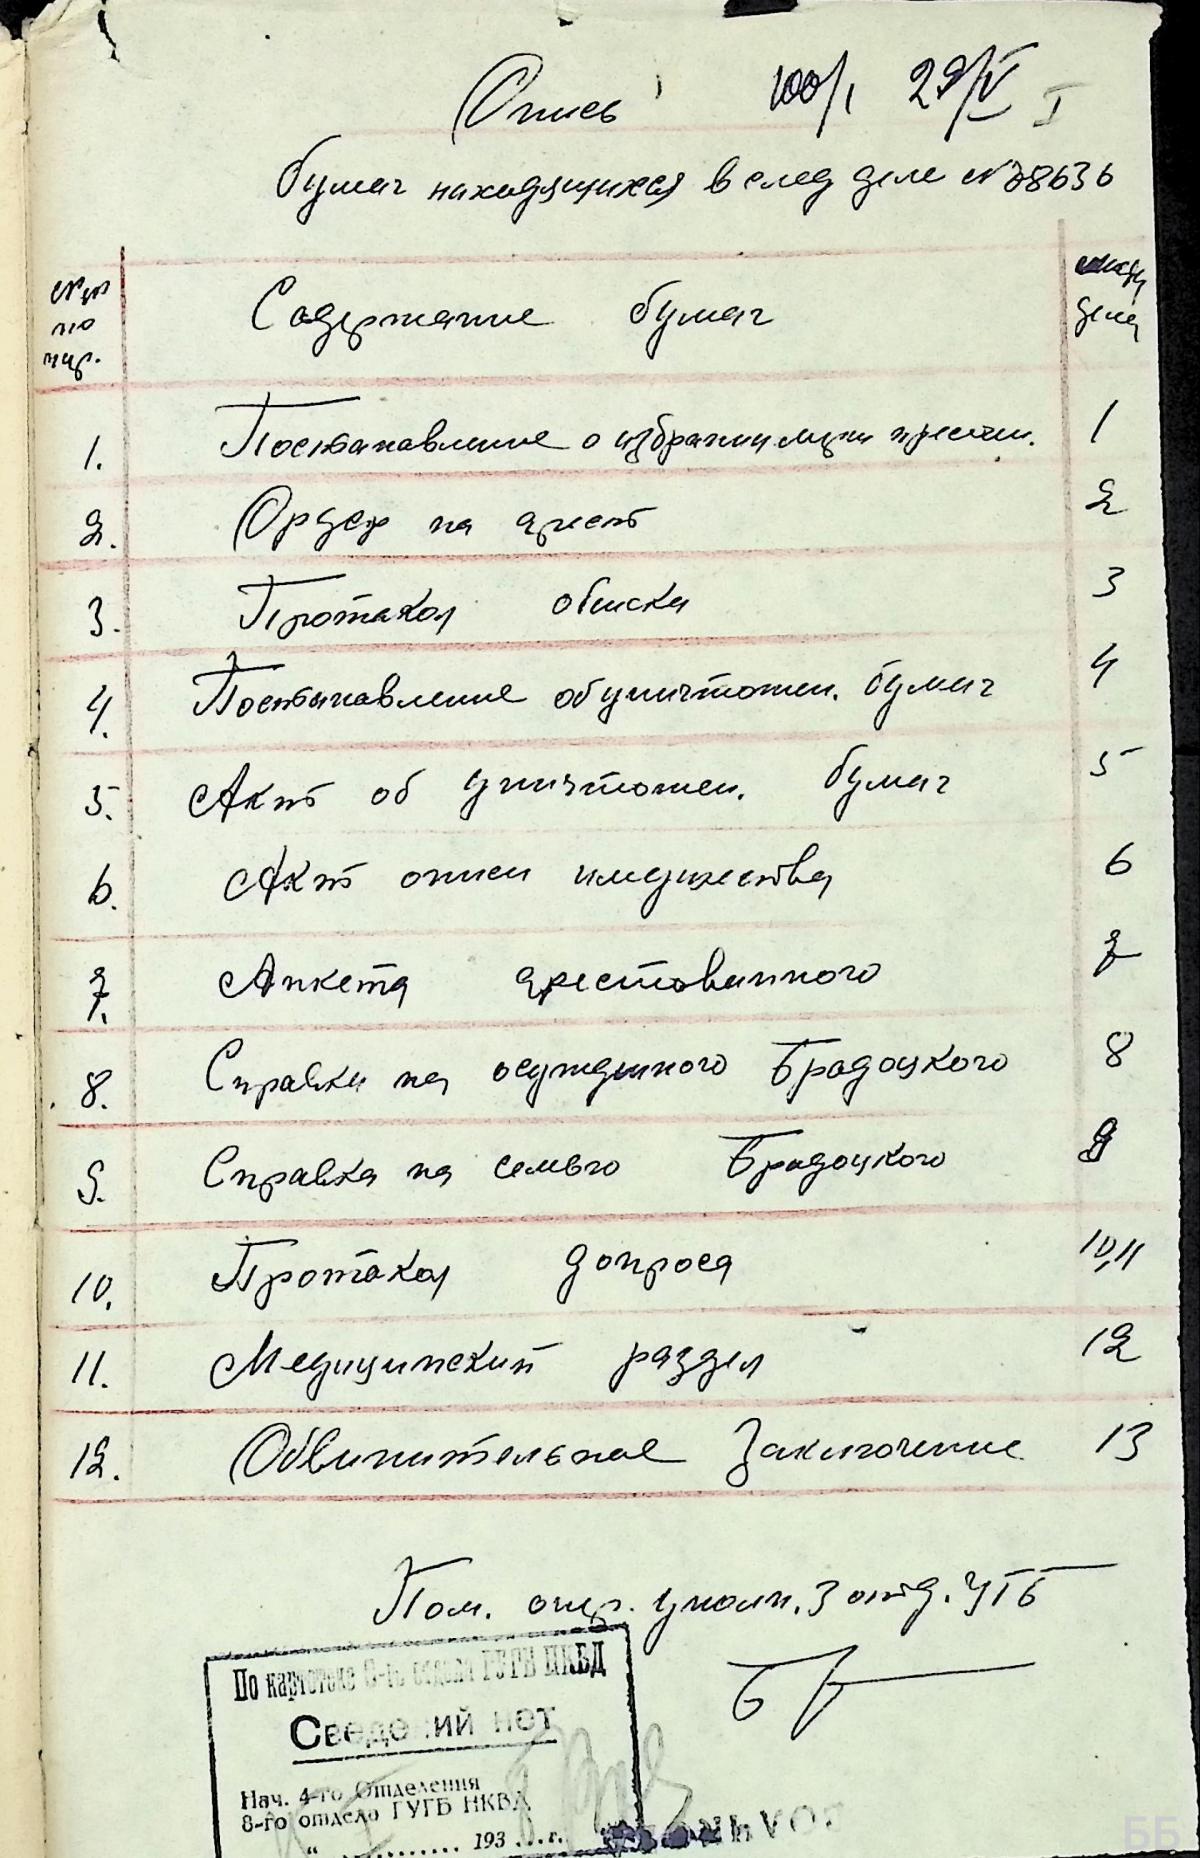 Опись 100/1 29/V I
бумаг находящихся в след деле №78636
№№ Содержание бумаг
по
пор. дела
1. Постановление о избрании меры пресечен. 1
2. Ордер на арест 2
3. Протакол обиска 3
4. Постановление об уничтожен. бумаг 4
5. Акт об уничтожен. бумаг 5
6. Акт описи имущества 6
7. Анкета арестованного 7
8. Справки на осужденного Брадоцкого 8
9. Справка на семью Брадоцкого 9
10. Протакол допроса 10,11
11. Медицинский раздел 12
12. Обвинительное Заключение 13
Пом. опер. уполн. 3 отд. УГБ
По картотеке 8-го отдела ГУГБ НКВД
Сведений нет
Нач. 4-го Отделения
8-го отдела ГУГБ НКВД
" ............ 193 ... г.
ББ